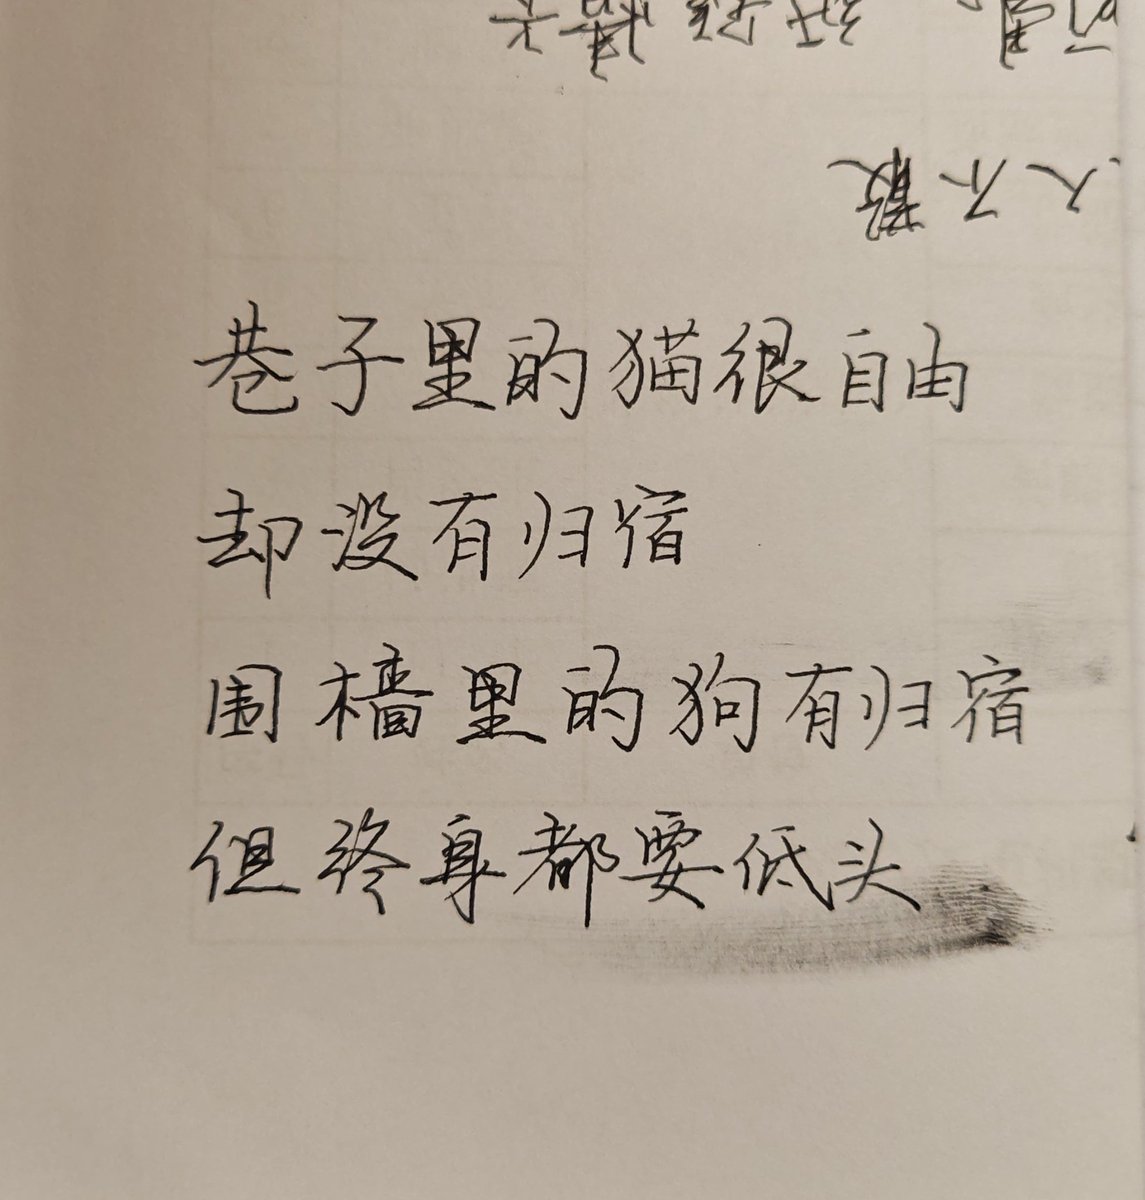 巷子里的猫很自由
却没有归宿
围墙里的狗有归宿
但终身都要低头
人不散